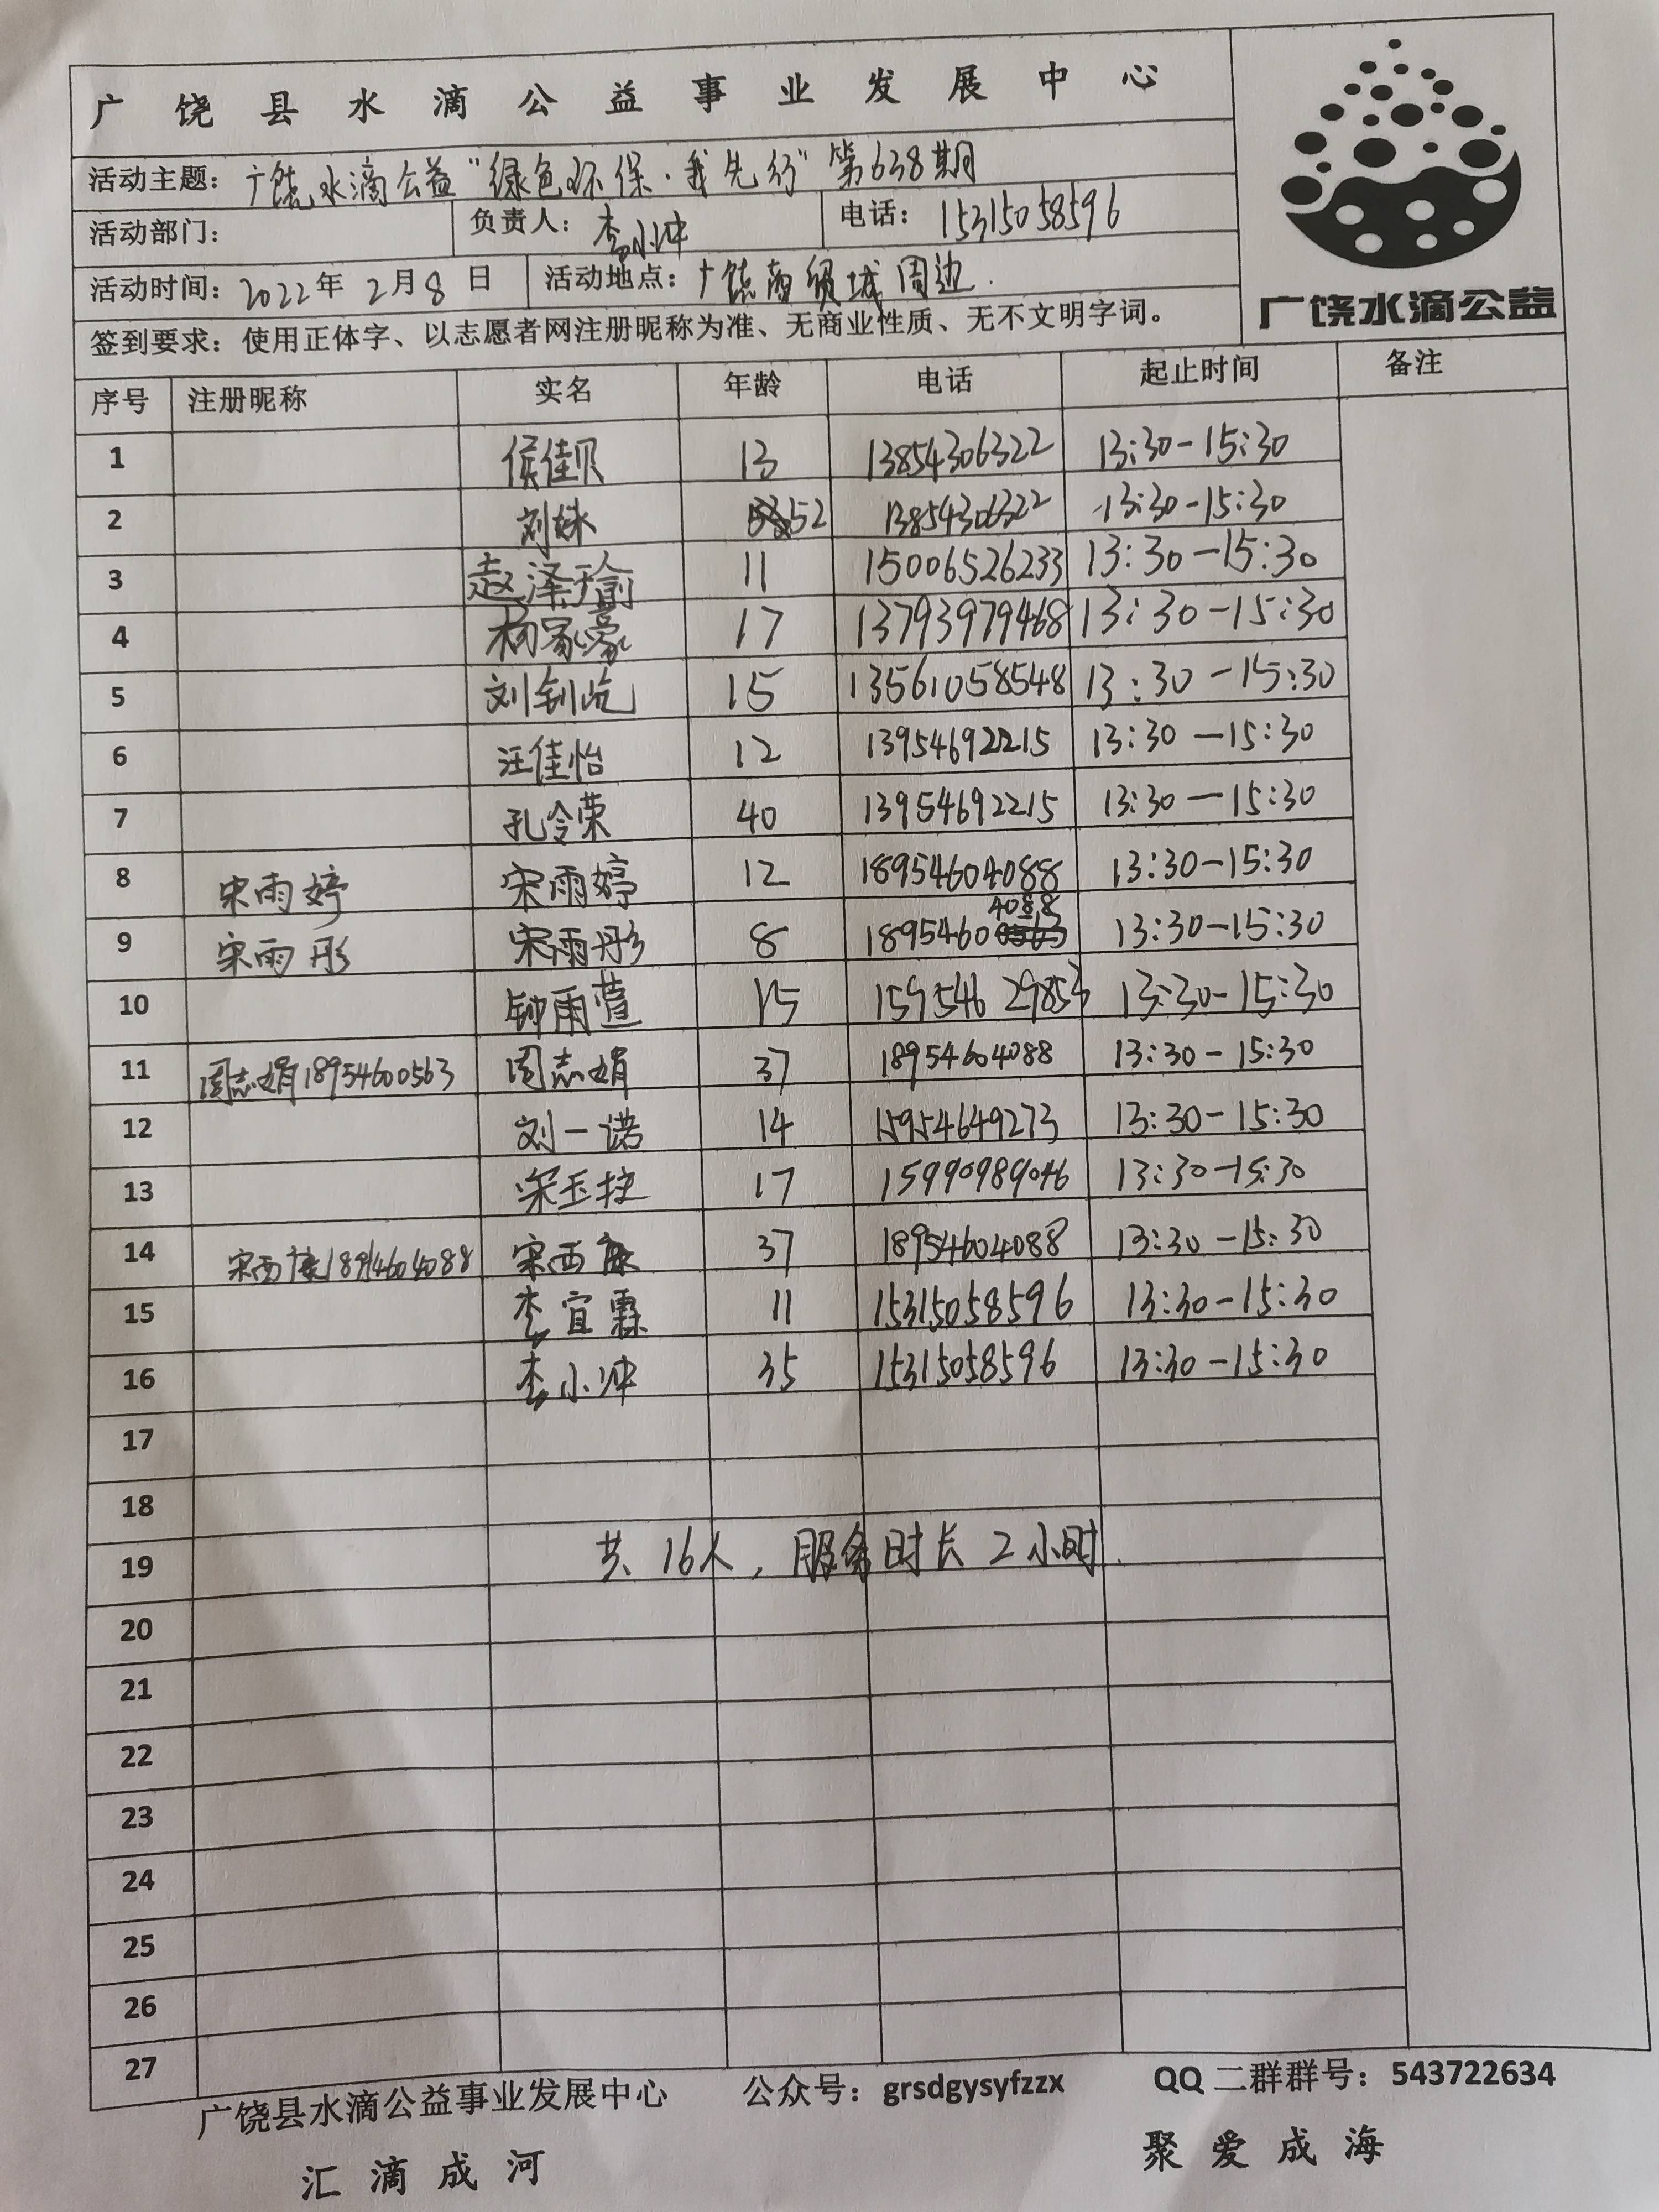 广饶县水滴公益事业发展中心
活动主题：广饶水滴公益“绿色环保·我先行”第638期
活动部门： 负责人：李小冲 电话：15315058596
活动时间：2022年2月8日 活动地点：广饶商贸城周边.
广饶水滴公益
签到要求：使用正体字、以志愿者网注册昵称为准、无商业性质、无不文明字词。
序号 注册昵称 实名 年龄 电话 起止时间 备注
1 侯佳贝 13 13854306322 13:30-15:30
2 刘妹 52 13854306322 13:30-15:30
3 赵泽瑜 11 15006526233 13:30-15:30
4 杨家豪 17 13793979468 13:30-15:30
5 刘钊屹 15 13561058548 13:30-15:30
6 汪佳怡 12 13954692215 13:30-15:30
7 孔令荣 40 13954692215 13:30-15:30
8 宋雨婷 宋雨婷 12 18954604088 13:30-15:30
9 宋雨彤 宋雨彤 8 18954604088 13:30-15:30
10 钟雨萱 15 15954629853 13:30-15:30
11 周志娟18954600563 周志娟 37 18954604088 13:30-15:30
12 刘一诺 14 15954649273 13:30-15:30
13 17 15990989046 13:30-15:30
14 宋西 37 18954604088 13:30-15:30
15 李宜霖 11 15315058596 13:30-15:30
16 李小冲 35 15315058596 13:30-15:30
17
18
19 共16人，服务时长2小时.
20
21
22
23
24
25
26
27
广饶县水滴公益事业发展中心 公众号：grsdgysyfzzx QQ二群群号：543722634
汇滴成河 聚爱成海